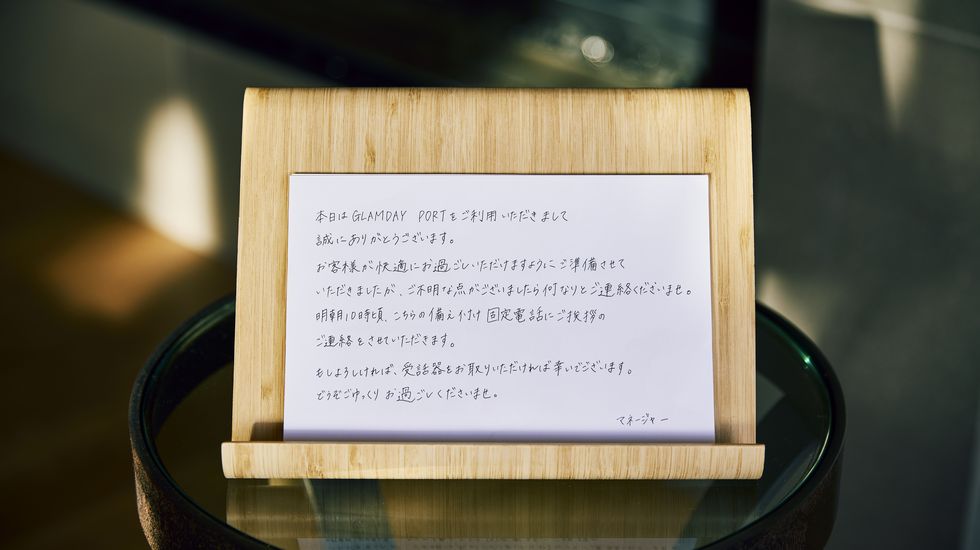 本日はGLAMDAY PORTをご利用いただきまして
誠にありがとうございます。
お客様が快適にお過ごしいただけますようにご準備させて
いただきましたが、ご不明な点がございましたら何なりとご連絡くださいませ。
明朝10時頃、こちらの備え付け固定電話にご挨拶の
ご連絡をさせていただきます。
もしよろしければ、受話器をお取りいただければ幸いでございます。
どうぞごゆっくりお過ごしくださいませ。
マネージャー